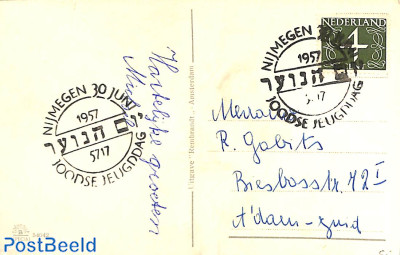 NIJMEGEN 30 JUNI
1957
יום הנוער
5717
JOODSE JEUGDDAG
Hartelijke groeten
Uitgave "Rembrandt", Amsterdam
NEDERLAND
4
NIJMEGEN 30
1957
הנוער
5717
JOODSE JEUGDDAG
R. Gobits
Biesboschstr. 42 I
A'dam-zuid
PostBeeld